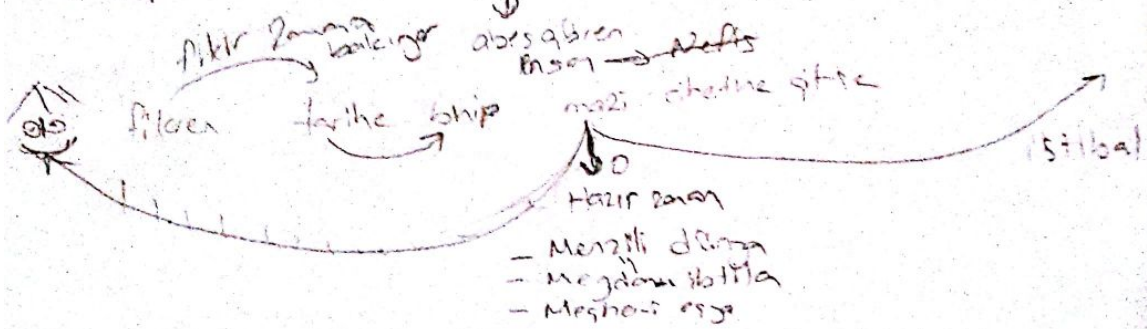 fikir zamana
bakınger abesabren
insan → Nefis
fikren tarihe binip mazi cihetine gitse
istikbal
0
Hazır zaman
- Menzili dünya
- Meydanı ibtila
- Meşher-i eşya